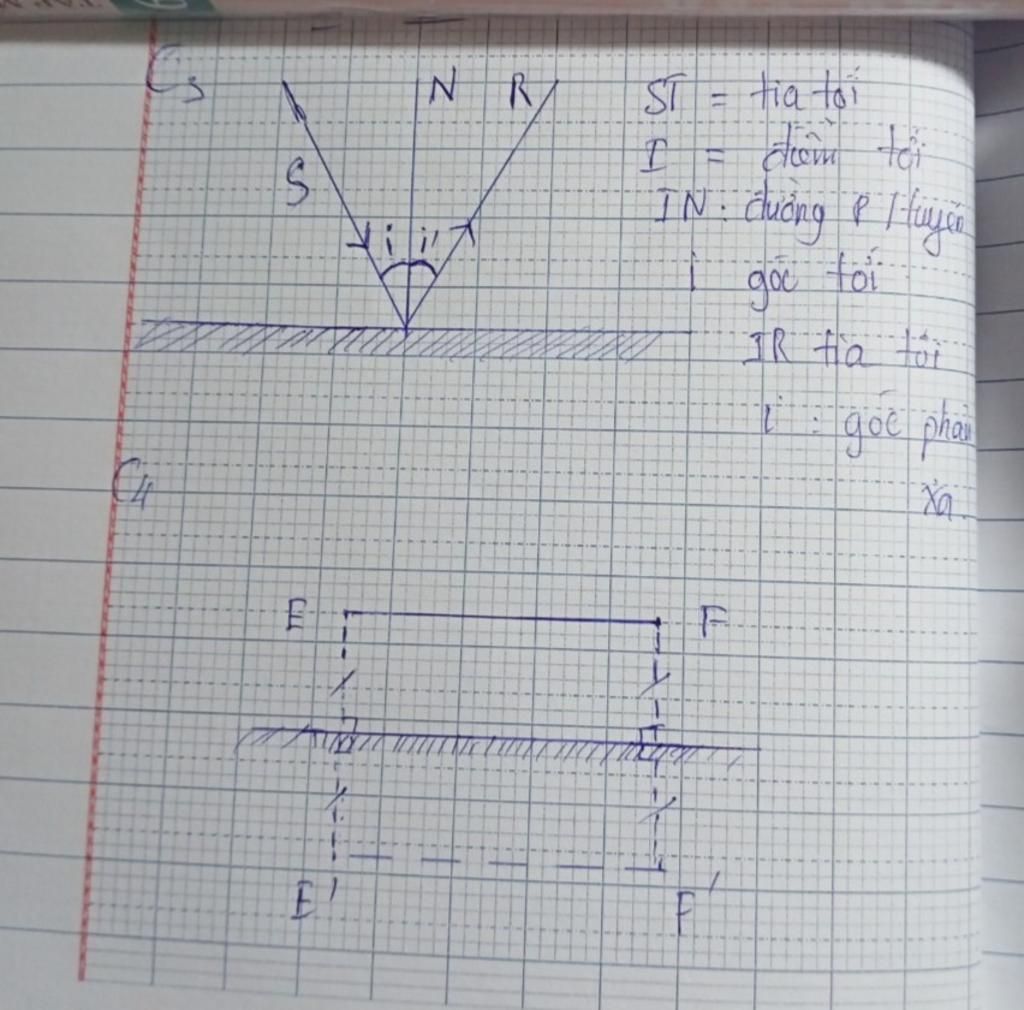 C3
N R
S
i i'
SI = tia tới
I = điểm tới
IN: đường p/tuyến
i góc tới
IR tia tới
i' : góc phản
xạ
C4
E F
E' F'